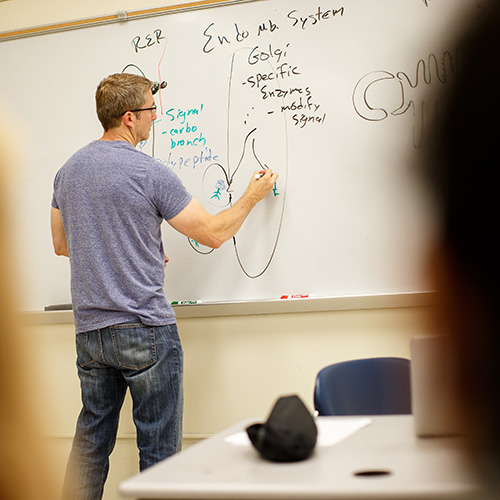 Endo Mb. System
RER
Golgi
- specific
Enzymes
- modify
signal
- Signal
- carbo
branch
Polypeptide